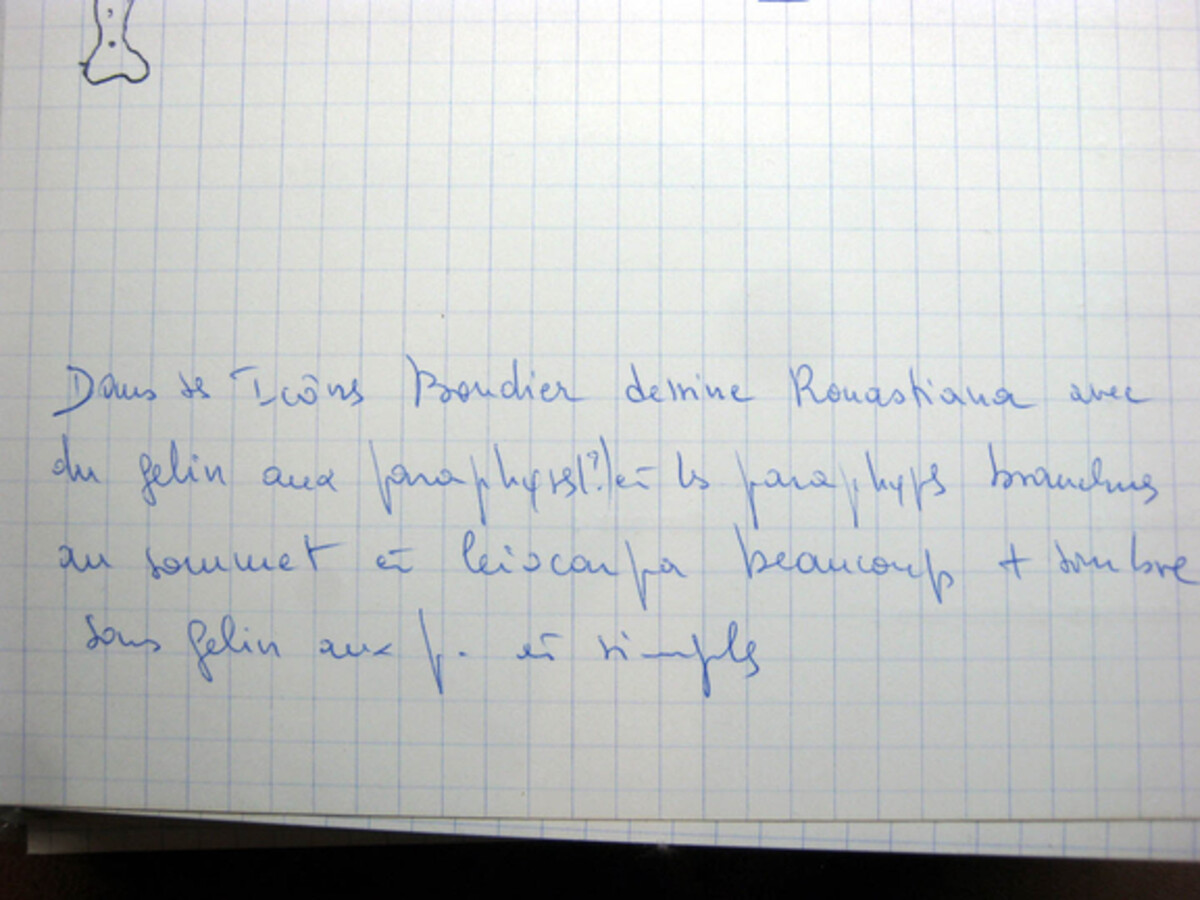 Dans ses Icônes Boudier dessine Ronastiana avec
du gelin aux paraphyses(?) et les paraphyses branchues
au sommet et leiocarpa beaucoup + sombre
sans gelin aux p. et simples